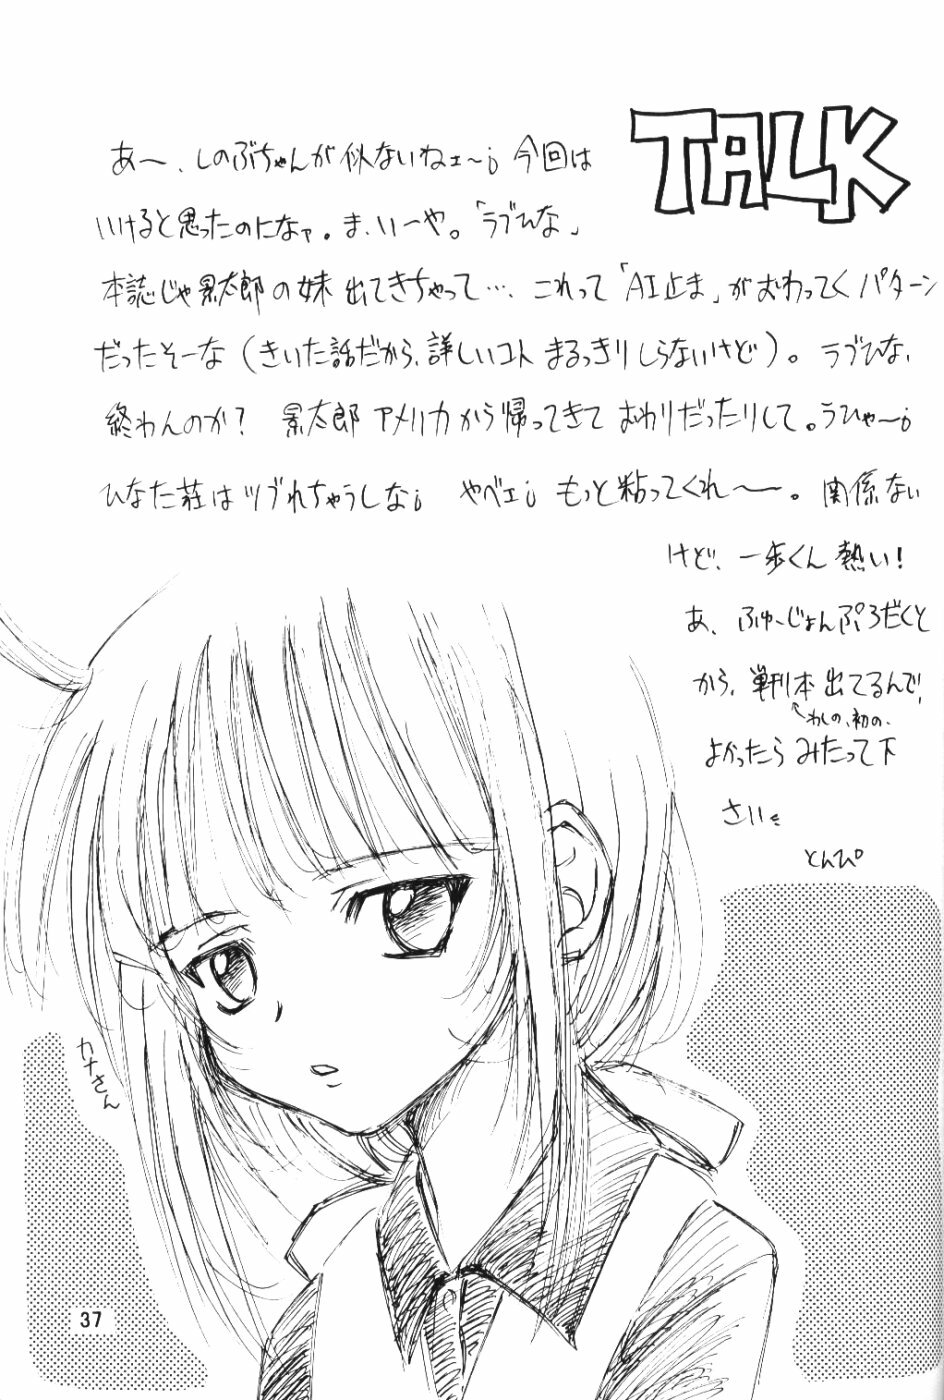 TALK
あ〜、しのぶちゃんが似ないねェ〜。今回は
いけると思ったのになァ。ま、いーや。「ラブひな」
本誌じゃ景太郎の妹出てきちゃって…、これって「AI止ま」がおわってくパターン
だったそーな(きいた話だから、詳しいコトまるっきりしらないけど)。ラブひな、
終わんのか? 景太郎アメリカから帰ってきておわりだったりして。うひゃ〜。
ひなた荘はツブれちゃうしな。 やべェ。もっと粘ってくれ〜。関係ない
けど、一歩くん熱い!
あ、ふゅーじょんぷろだくと
から、単刊本出てるんで、
←わしの、初の、
よかったらみたって下
さい
とんぴ
カナさん
37